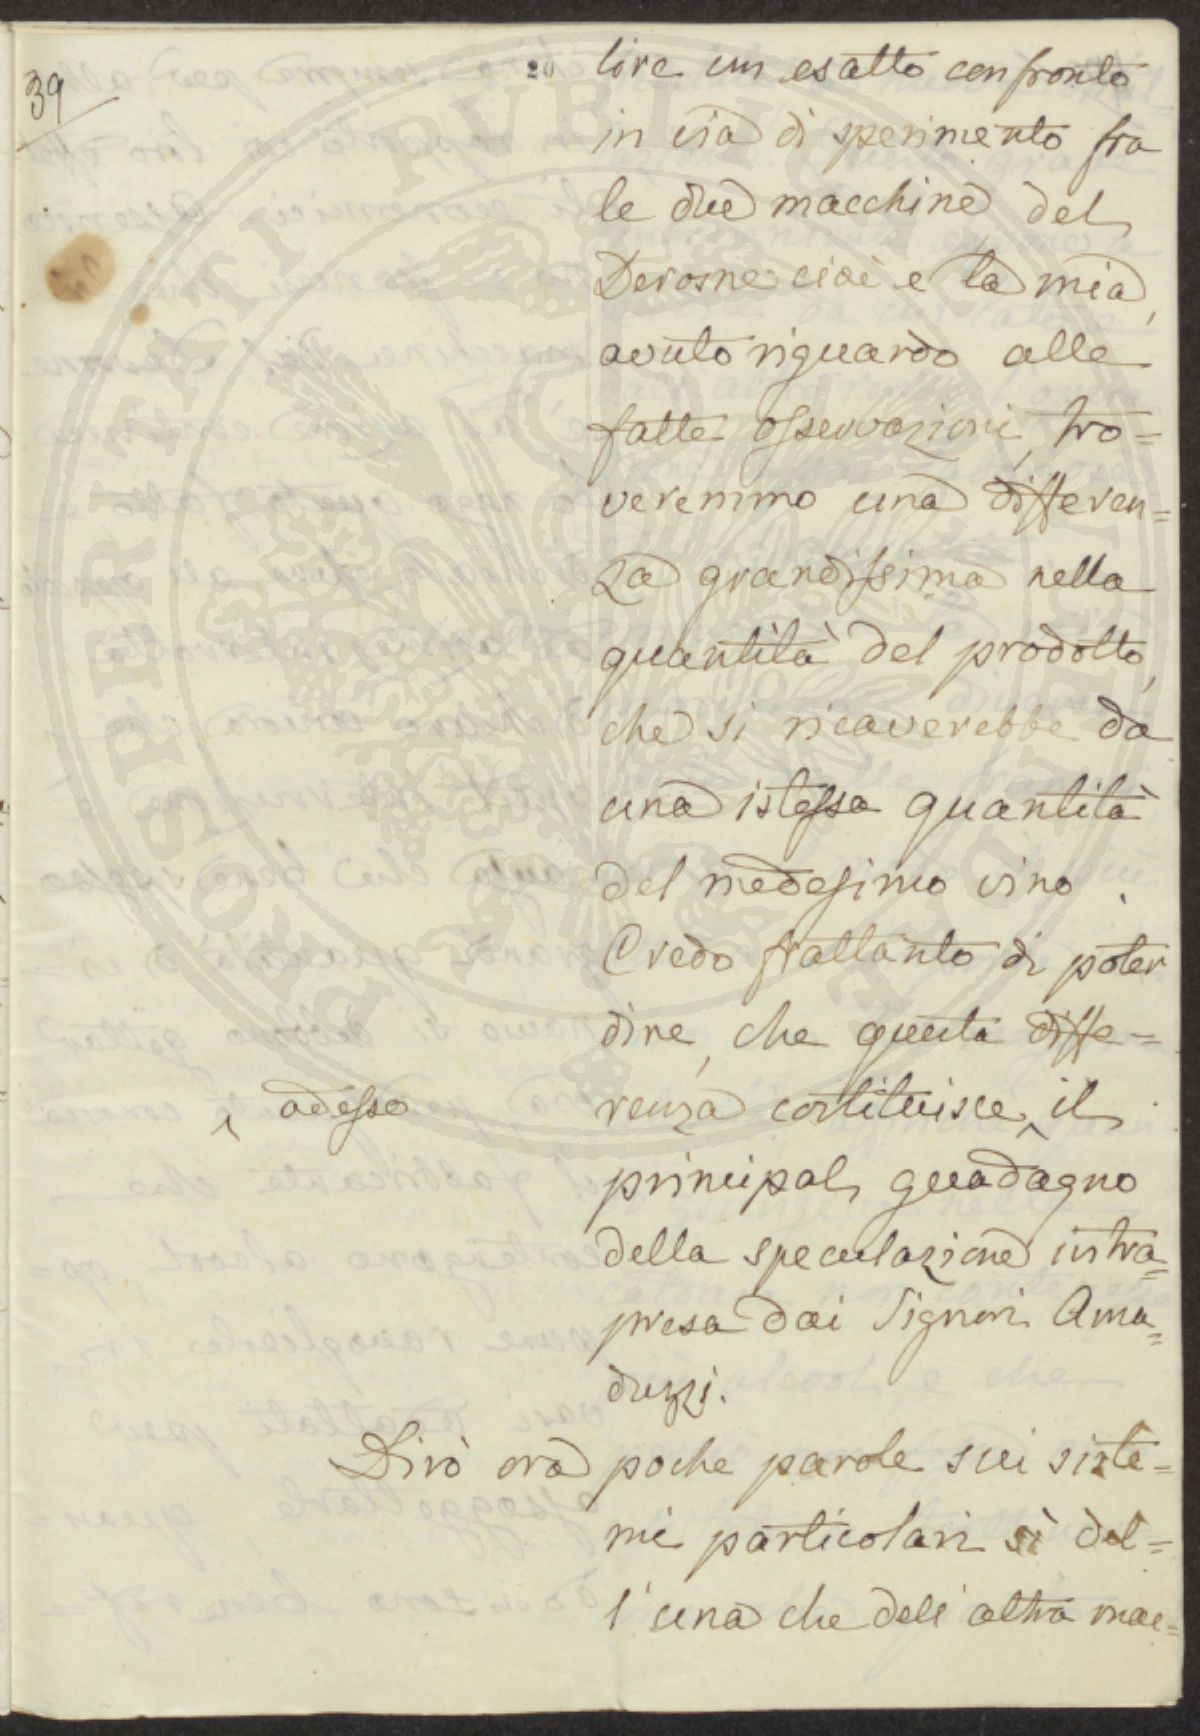 39
20
lire un esatto confronto
in via di sperimento fra
le due macchine, del
Derosne cioè e la mia,
avuto riguardo alle
fatte osservazioni, tro=
veremmo una differen=
za grandissima nella
quantità del prodotto,
che si ricaverebbe da
una istessa quantità
del medesimo vino.
Credo frattanto di poter
dire, che questa diffe=
renza costituisce ^ il
^ adesso
principal guadagno
della speculazione intra=
presa dai Signori Ama=
duzzi.
Dirò ora poche parole sui siste=
mi particolari sì del=
l'una che dell'altra mac=
PROSPERITATI PVBLICAE